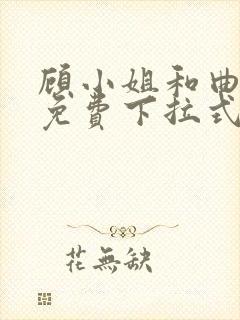 顾小姐和曲
免費下拉式
花無缺